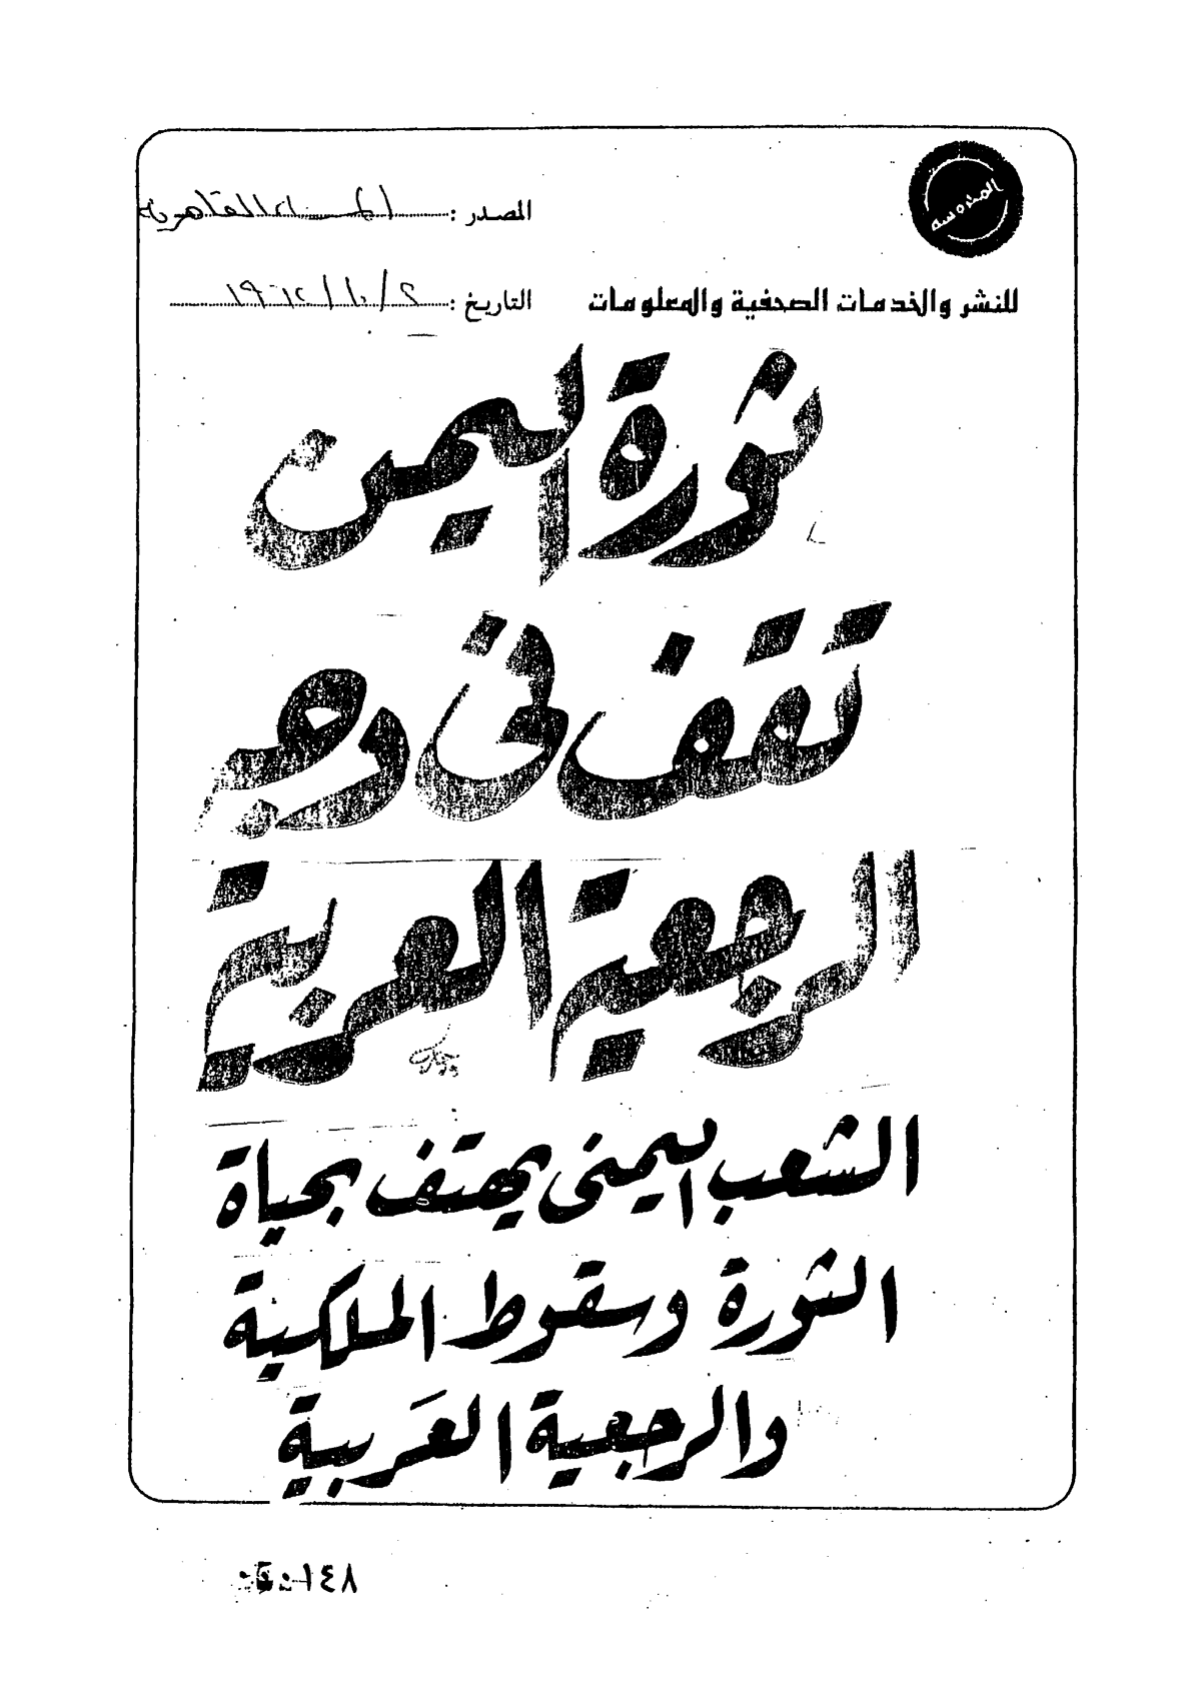 المحروسة
المصدر: المساء القاهرية
للنشر والخدمات الصحفية والمعلومات
التاريخ: ٢/١٠/١٩٦٢
ثورة اليمن
تقف فى وجه
الرجعية العربية
الشعب اليمنى يهتف بحياة
الثورة وسقوط الملكية
والرجعية العَربية
١٤٨